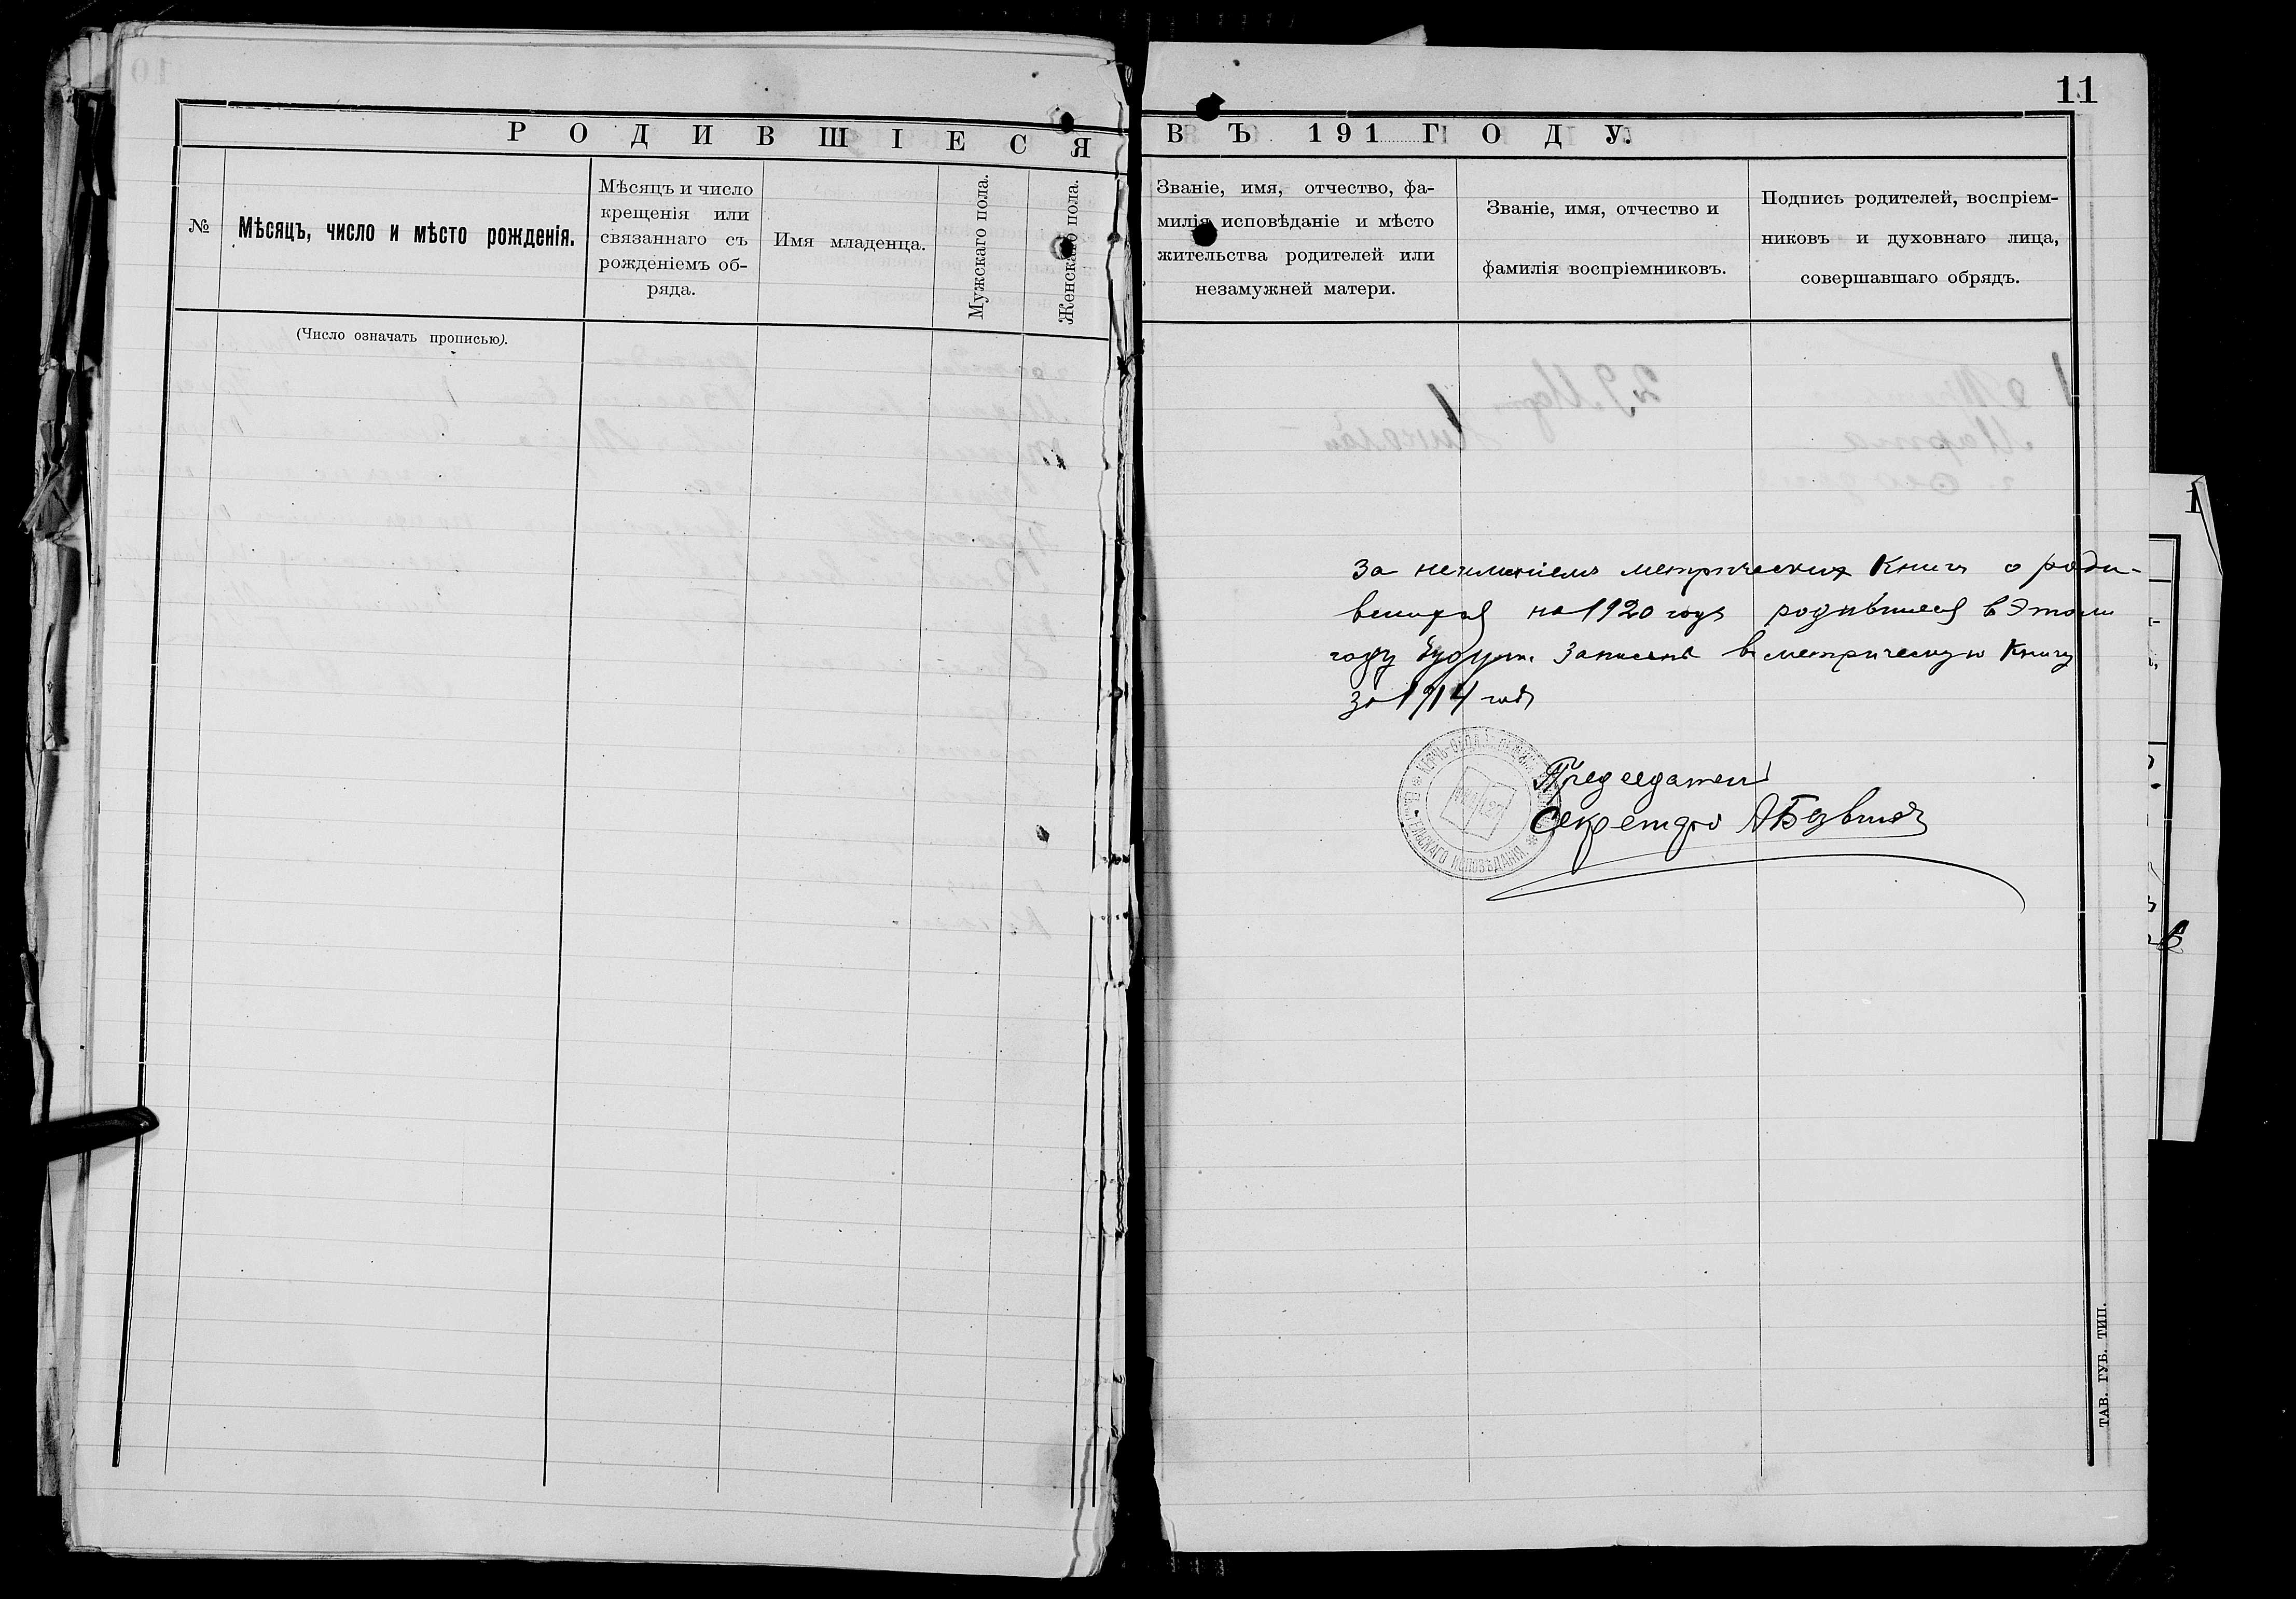 11
РОДИВШІЕСЯ ВЪ 191 ГОДУ.
№
Мѣсяцъ, число и мѣсто рожденія.
Мѣсяцъ и число
крещенія или
связаннаго съ
рожденіемъ об-
ряда.
Имя младенца.
Мужскаго пола.
Женскаго пола.
Званіе, имя, отчество, фа-
милія исповѣданіе и мѣсто
жительства родителей или
незамужней матери.
Званіе, имя, отчество и
фамилія воспріемниковъ.
Подпись родителей, воспріем-
никовъ и духовнаго лица,
совершавшаго обрядъ.
(Число означать прописью).
За неимѣніем метрических Книг о роди-
вшихся на 1920 годъ родившиеся в Этом
году будут записаны в метрическую Книгу
за 1914 годъ
Председатель
Секретарь
ИСПОВѢДАНІЯ
ТАВ. ГУБ. ТИП.